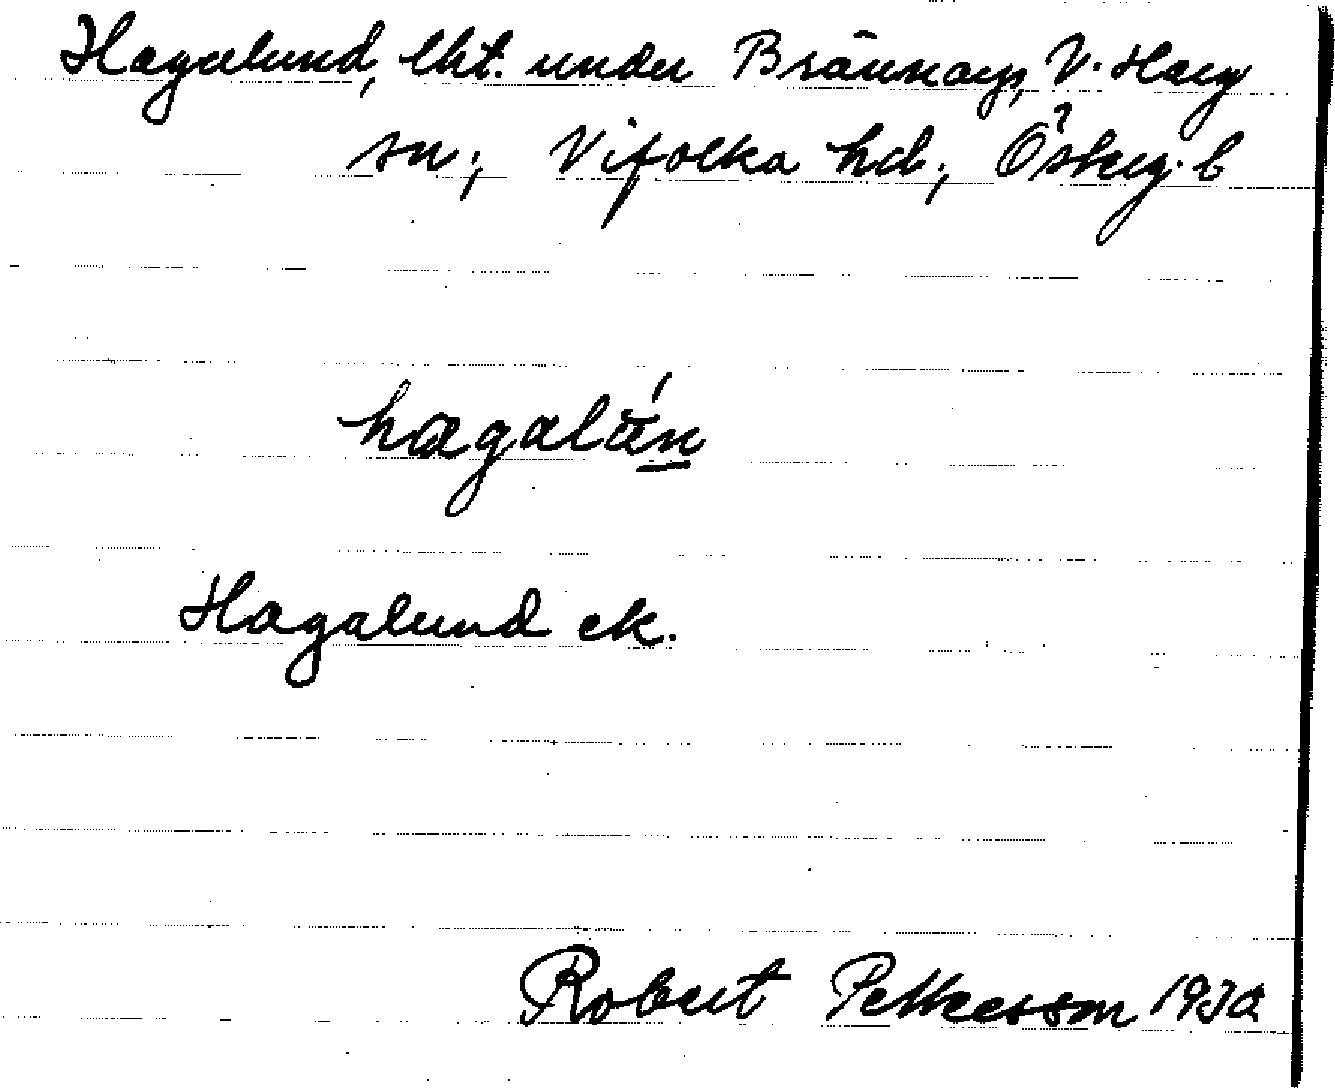 Hagalund, lht. under Brännag, V. Harg
sn; Vifolka hd; Österg. l
hagalún
Hagalund ek.
Robert Pettersson 1930